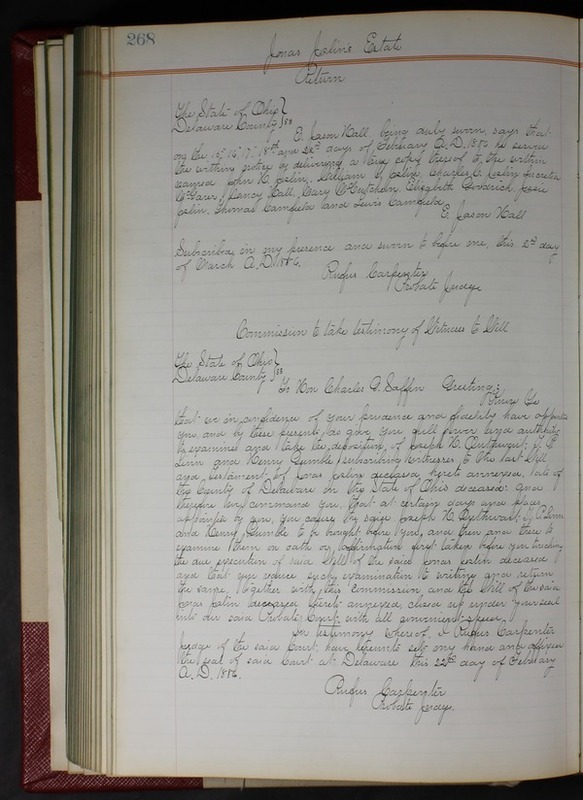 268
Jonas Joslin's Estate
Return
The State of Ohio }
Delaware County } ss
E. Jason Hall being duly sworn, says that
on the 15" 16" 17" 18th and 22d days of February A. D. 1886 he served
the within notice by delivering a true copy thereof to the within
named John N. Joslin, William Joslin, Charles C. Joslin
Nancy Hall, Mary McCutchen, Elizabeth Goodrich, Josie
Joslin, Thomas Camfield and Lewis Camfield
E. Jason Hall
Subscribed in my presence and sworn to before me, this 2nd day
of March A. D. 1886.
Rufus Carpenter
Probate Judge
Commission to take testimony of Witnesses to Will
The State of Ohio }
Delaware County } ss
To Hon Charles A. Saffin Greeting:
Know Ye
that we in confidence of your prudence and fidelity have appointed
you, and by these presents do give you full power and authority
to examine and take the deposition of Joseph
Linn and Henry Gumble subscribing witnesses to the last Will
and testament of Jonas Joslin deceased hereto annexed, late of
the County of Delaware in the State of Ohio deceased: And
therefore we command you, that at certain days and places
appointed by you, you cause the said Joseph Linn
and Henry Gumble to be brought before you, and then and there to
examine them on oath or affirmation first taken before you touching
the due execution of said Will of the said Jonas Joslin deceased
and that you reduce such examination to writing and return
the same, together with this Commission and the Will of the said
Jonas Joslin deceased hereto annexed, closed up under your seal
into our said Probate Court with all convenient speed.
In testimony whereof, I Rufus Carpenter
judge of the said Court, have hereunto set my hand and affixed
the seal of said Court at Delaware this 22nd day of February
A. D. 1886.
Rufus Carpenter
Probate Judge.